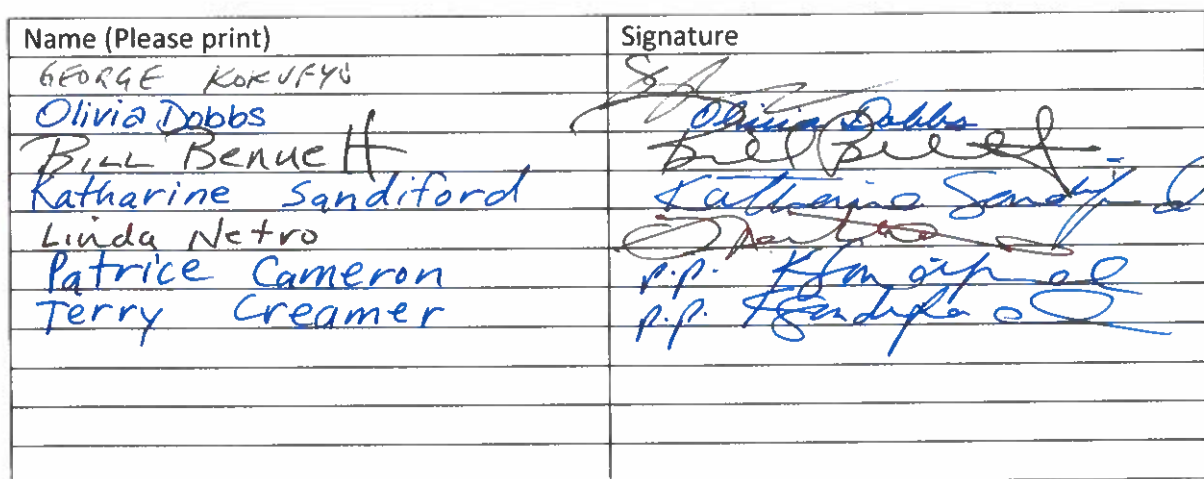 Name (Please print) Signature
GEORGE KOKUFYU
Olivia Dobbs Olivia Dobbs
BILL BENNETT Bill
Katharine Sandiford Katharine Sandiford
Linda Netro
Patrice Cameron p.p. KSandiford
Terry Creamer p.p. KSandiford